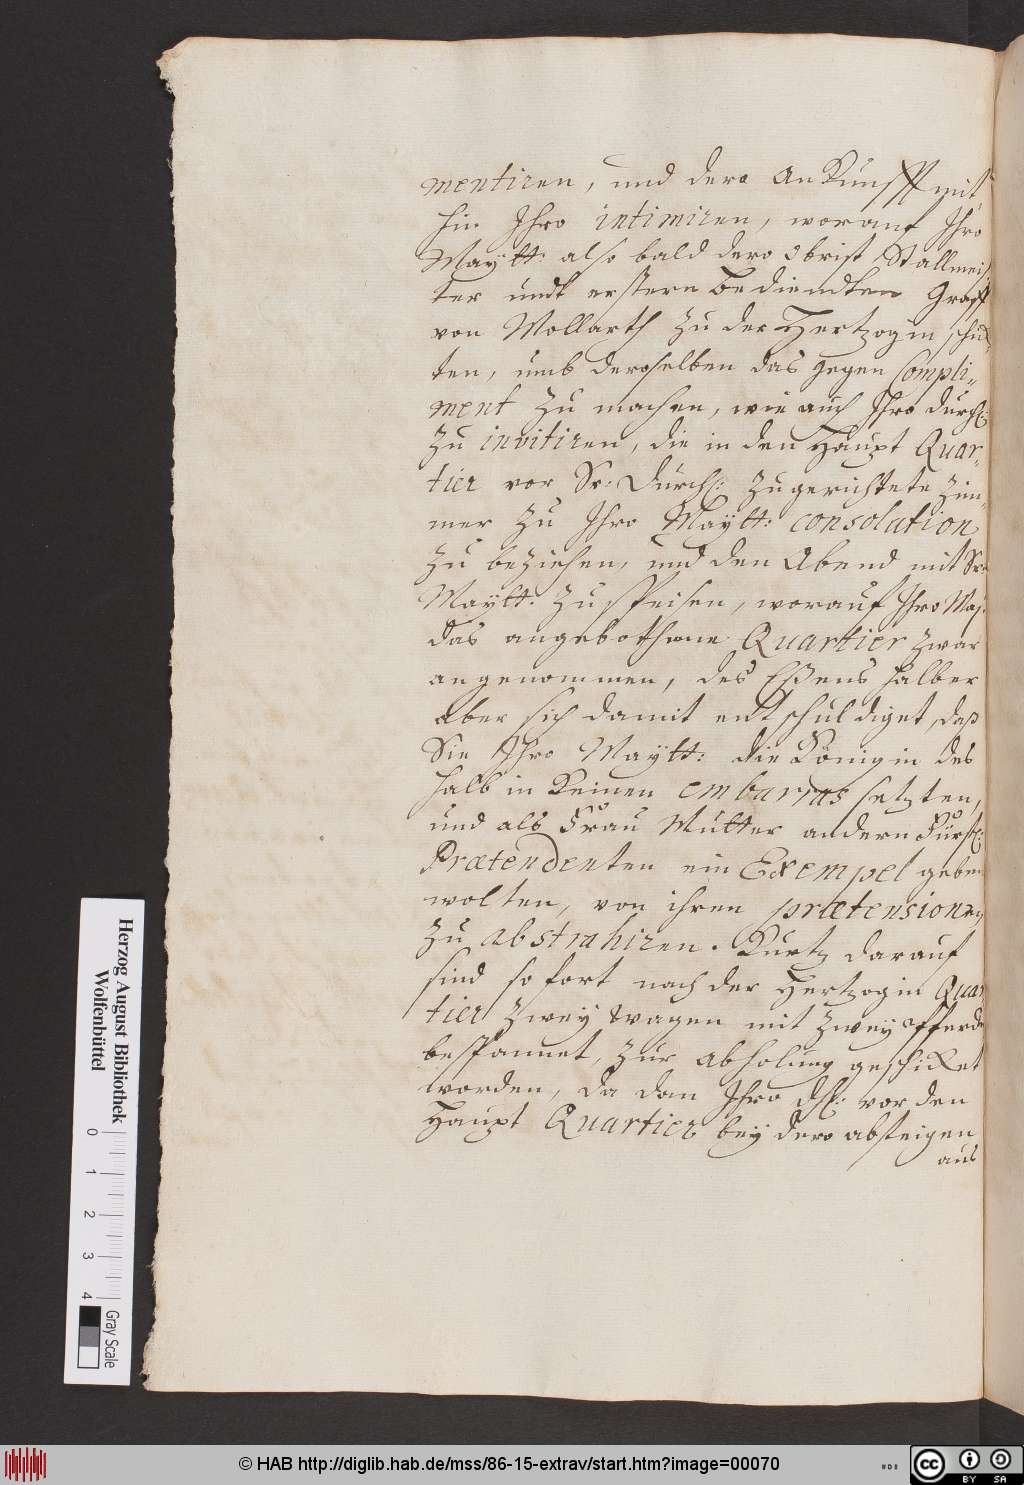 mentiren, und dero Ankunfft mit
hin Ihro intimiren, worauf Ihro
Maÿtt: also bald dero Obrist Stallmeis-
ter undt erstern bediendten Graff
von Mollarth zu der Hertzogin schick-
ten, umb deroselben das gegen Compli-
ment zu machen, wie auch Ihro Durchl:
zu invitiren, die in den Haupt Quar-
tier vor Sr: Durchl: zugerichtete Zim-
mer zu Ihro Maÿtt: consolation
zu beziehen, und den Abend mit Sr:
Maÿtt: zu speisen, worauf Ihro Maj:
das angebothene Quartier zwar
angenommen, des Eßens halber
aber sich damit entschuldiget, daß
Sie Ihro Maÿtt: die Königin des
halb in keinen embarras setzten,
und alß Frau Mutter andern Fürstl:
Prætendenten ein Exempel geben
wolten, von ihren prætensionen
zu abstrahiren. Kurtz darauf
sind so fort nach der Hertzogin Quar
tier zwey wagen mit zwey Pferde
bespannet, zur abholung geschicket
worden, da dan Ihro dhl: vor den
Haupt Quartier bey dero absteigen
aus
Herzog August Bibliothek
Wolfenbüttel
0 1 2 3 4
Gray Scale
© HAB http://diglib.hab.de/mss/86-15-extrav/start.htm?image=00070
cc BY SA